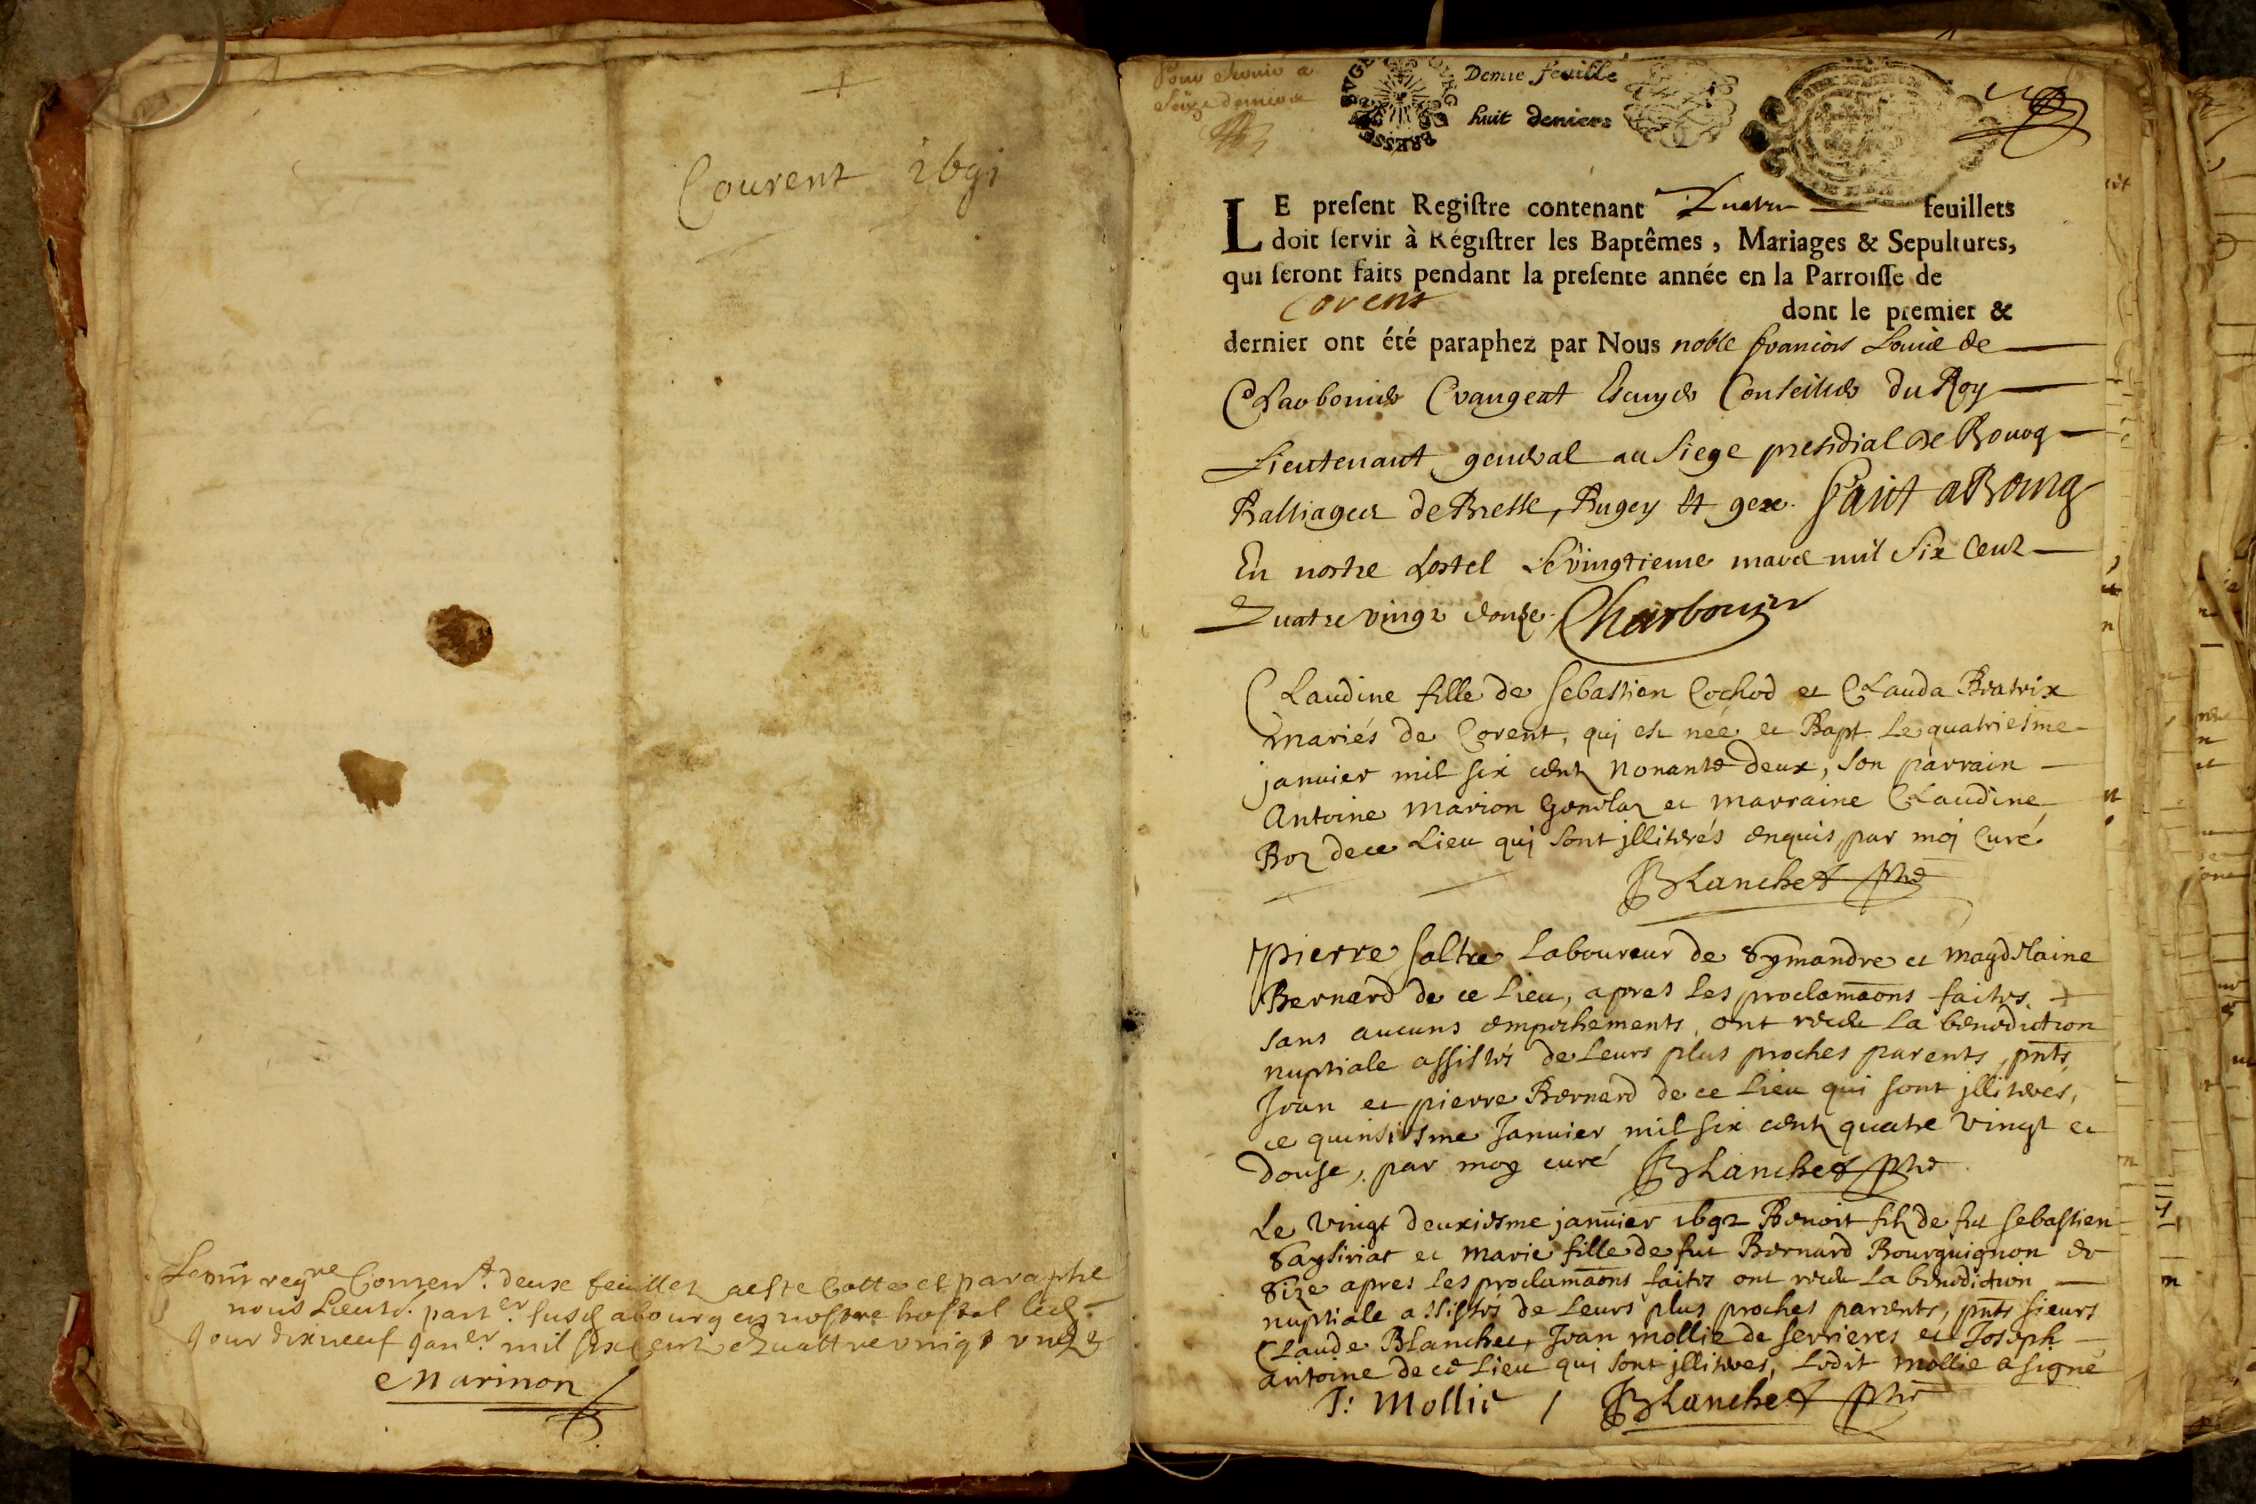 Courent 1691
Le pnt regre Content. deux feuillets a esté Cotté et paraphé
nous Lieut. part.er susd a bourg en nostre hostel led.
Jour dixneuf Janer. mil six cent quattre vingt unze
Marinon
Pour servir a
seize deniers
BRESSE BVGEY BOVRG
Demie feuille
huit deniers
LE preſent Regiſtre contenant Quatre feuillets
doit ſervir à Régiſtrer les Baptêmes, Mariages & Sepultures,
qui ſeront faits pendant la preſente année en la Parroiſſe de
Corent dont le premier &
dernier ont été paraphez par Nous noble françois Louis de
Charbonier Crangeat Escuyer Conseiller du Roy
Lieutenant general au siege presidial de Bourg
Balliages de Bresse, Bugey et gex. fait a Bourg
En nostre hostel le vingtieme mars mil six Cent
Quatre vingt douze. Charbonier
Claudine fille de sebastien Cochod et Clauda Beatrix
mariés de Corent, qui est née et Bapt. le quatriesme
janvier mil six cent nonante deux, son parrain
Antoine marion et marraine Claudine
Boz de ce Lieu qui sont illiterés enquis par moi Curé
Blanchet ptre
pierre saltre Laboureur de symandre et magdelaine
Bernard de ce Lieu, apres les proclamaons faites
sans aucuns empechements, ont receu la benediction
nuptiale assistés de Leurs plus proches parents, pnts
Jean et pierre Bernard de ce Lieu qui sont jlliteres,
ce quinsiesme Janvier mil six cent quatre vingt et
douse, par moy curé Blanchet ptre
Le vingt deuxiesme janvier 1692 Benoit filz de fut sebastien
saysiriat et marie fille de fut Bernard Bourguignon de
size apres les proclamaons faites ont receu la benediction
nuptiale assistés de Leurs plus proches parents, pnts sieurs
Claude Blanchet, Jean mollie de serrieres et Joseph
antoine de ce Lieu qui sont jlliteres, ledit mollie a signé
J: Mollie / Blanchet ptre